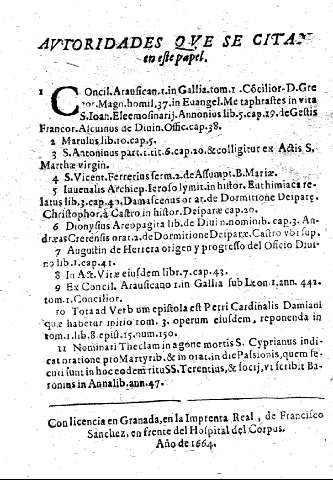 AVTORIDADES QVE SE CITAN
en este papel.
1 Concil. Arausican. 1. in Gallia. tom. 1. Cõcilior. D. Gre
gor. Magn. homil. 37. in Euangel. Metaphrastes in vita
S. Ioan. Eleemosinarij. Annonius lib. 5. cap. 19. de Gestis
Francor. Alcuinus de Diuin. Offic. cap. 38.
2 Marulus lib. 10. cap. 5.
3 S. Antoninus part. 1. tit. 6. cap. 20. & colligitur ex Actis S.
Marthæ virgin.
4 S. Vicent. Ferrerius serm. 2. de Assumpt. B. Mariæ.
5 Iuuenalis Archiep. Ierosolymit. in histor. Euthimiaca re
latus lib. 3. cap. 43. Damascenus orat. de Dormitione Deiparę.
Christophor. à Castro in histor. Deiparæ cap. 20.
6 Dionysius Areopagita lib. de Diuin. nominib. cap. 3. An-
dræas Crerensis orat. 2. de Dormitione Deiparæ. Castro vbi sup.
7 Augustin de Herrera origen y progresso del Oficio Diui-
no lib. 1. cap. 41.
8 In Act. Vitæ eiusdem libr. 7. cap. 43.
9 Ex Concil. Arausicano 1. in Gallia sub Leon. 1. ann. 441.
tom. 1. Concilior.
10 Tota ad Verbum epistola est Petri Cardinalis Damiani
quæ habetur initio tom. 3. operum eiusdem, reponenda in
tom. 1. lib. 8. epist. 15. num. 150.
11 Nominari Theclam in agone mortis S. Cyprianus indi-
cat oratione pro Martyrib. & in orat. in die Passionis, quem se-
cuti sunt in hoc eodem ritu SS. Terentius, & socij, vt scribit Ba-
ronius in Annalib. ann. 47.
Con licencia en Granada, en la Imprenta Real, de Francisco
Sanchez, en frente del Hospital del Corpus.
Año de 1664.